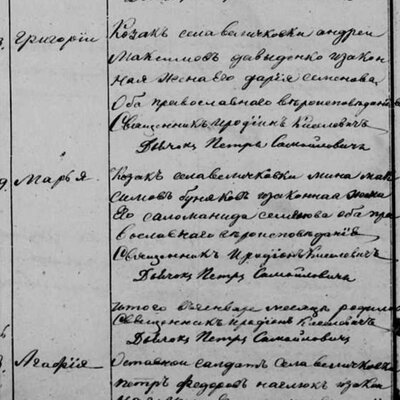 Григорїи
Козакъ села величковки андреи
Максимовъ давыденко изакон
ная жена его дарїя симонова
Оба православнаго вѣроисповѣданїя
Священникъ иродїонъ Киселовичъ
Дьячокъ Петръ Самойловичъ
Марья
Козакъ села величковки мина мак
симовъ буняковъ изаконная жена
Его саломанида семенова оба пра
вославнаго вѣроисповѣданїя
Священникъ Иродїонъ Киселовичъ
Дьячокъ Петръ Самойловичъ
итого въ генваре месяце родилос
Священникъ иродїонъ Киселовичъ
Дьячокъ Петръ Самойловичъ
Агафїя
Отставной солдатъ села величковки
петръ федоровъ изакон